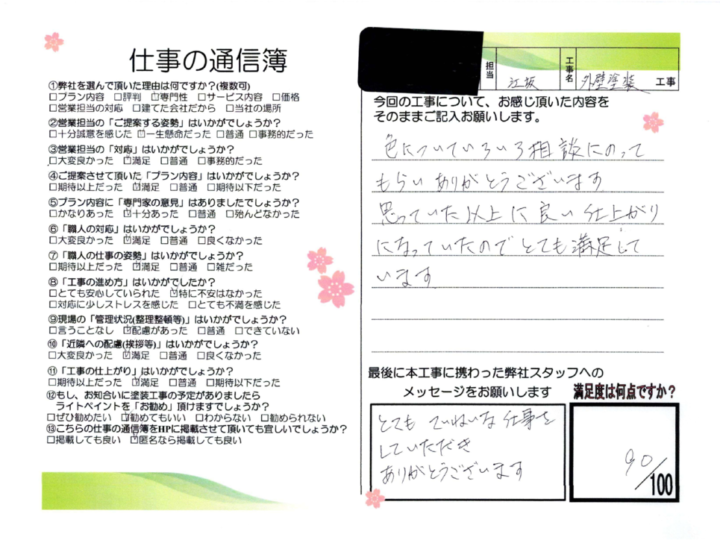 仕事の通信簿
①弊社を選んで頂いた理由は何ですか?(複数可)
□プラン内容 □評判 ☑専門性 □サービス内容 □価格
□営業担当の対応 ☑建てた会社だから □当社の場所
②営業担当の「ご提案する姿勢」はいかがでしょうか?
□十分誠意を感じた ☑一生懸命だった □普通 □事務的だった
③営業担当の「対応」はいかがでしょうか?
□大変良かった ☑満足 □普通 □事務的だった
④ご提案させて頂いた「プラン内容」はいかがでしょうか?
□期待以上だった ☑満足 □普通 □期待以下だった
⑤プラン内容に「専門家の意見」はありましたでしょうか?
□かなりあった ☑十分あった □普通 □殆んどなかった
⑥「職人の対応」はいかがでしょうか?
□大変良かった ☑満足 □普通 □良くなかった
⑦「職人の仕事の姿勢」はいかがでしょうか?
□期待以上だった ☑満足 □普通 □雑だった
⑧「工事の進め方」はいかがでしたか?
□とても安心していられた ☑特に不安はなかった
□対応に少しストレスを感じた □とても不満を感じた
⑨現場の「管理状況(整理整頓等)」はいかがでしょうか?
□言うことなし ☑配慮があった □普通 □できていない
⑩「近隣への配慮(挨拶等)」はいかがでしょうか?
□大変良かった ☑満足 □普通 □良くなかった
⑪「工事の仕上がり」はいかがでしょうか?
□期待以上だった ☑満足 □普通 □期待以下だった
⑫もし、お知合いに塗装工事の予定がありましたら
ライトペイントを「お勧め」頂けますでしょうか?
□ぜひ勧めたい ☑勧めてもいい □わからない □勧められない
⑬こちらの仕事の通信簿をHPに掲載させて頂いても宜しいでしょうか?
□掲載しても良い ☑匿名なら掲載しても良い
担当 江坂 工事名 外壁塗装 工事
今回の工事について、お感じ頂いた内容を
そのままご記入お願いします。
色についていろいろ相談にのって
もらい ありがとうございます
思っていた以上に良い仕上がり
になっていたのでとても満足して
います
最後に本工事に携わった弊社スタッフへの
メッセージをお願いします
とても ていねいな仕事を
していただき
ありがとうございます
満足度は何点ですか?
90/100